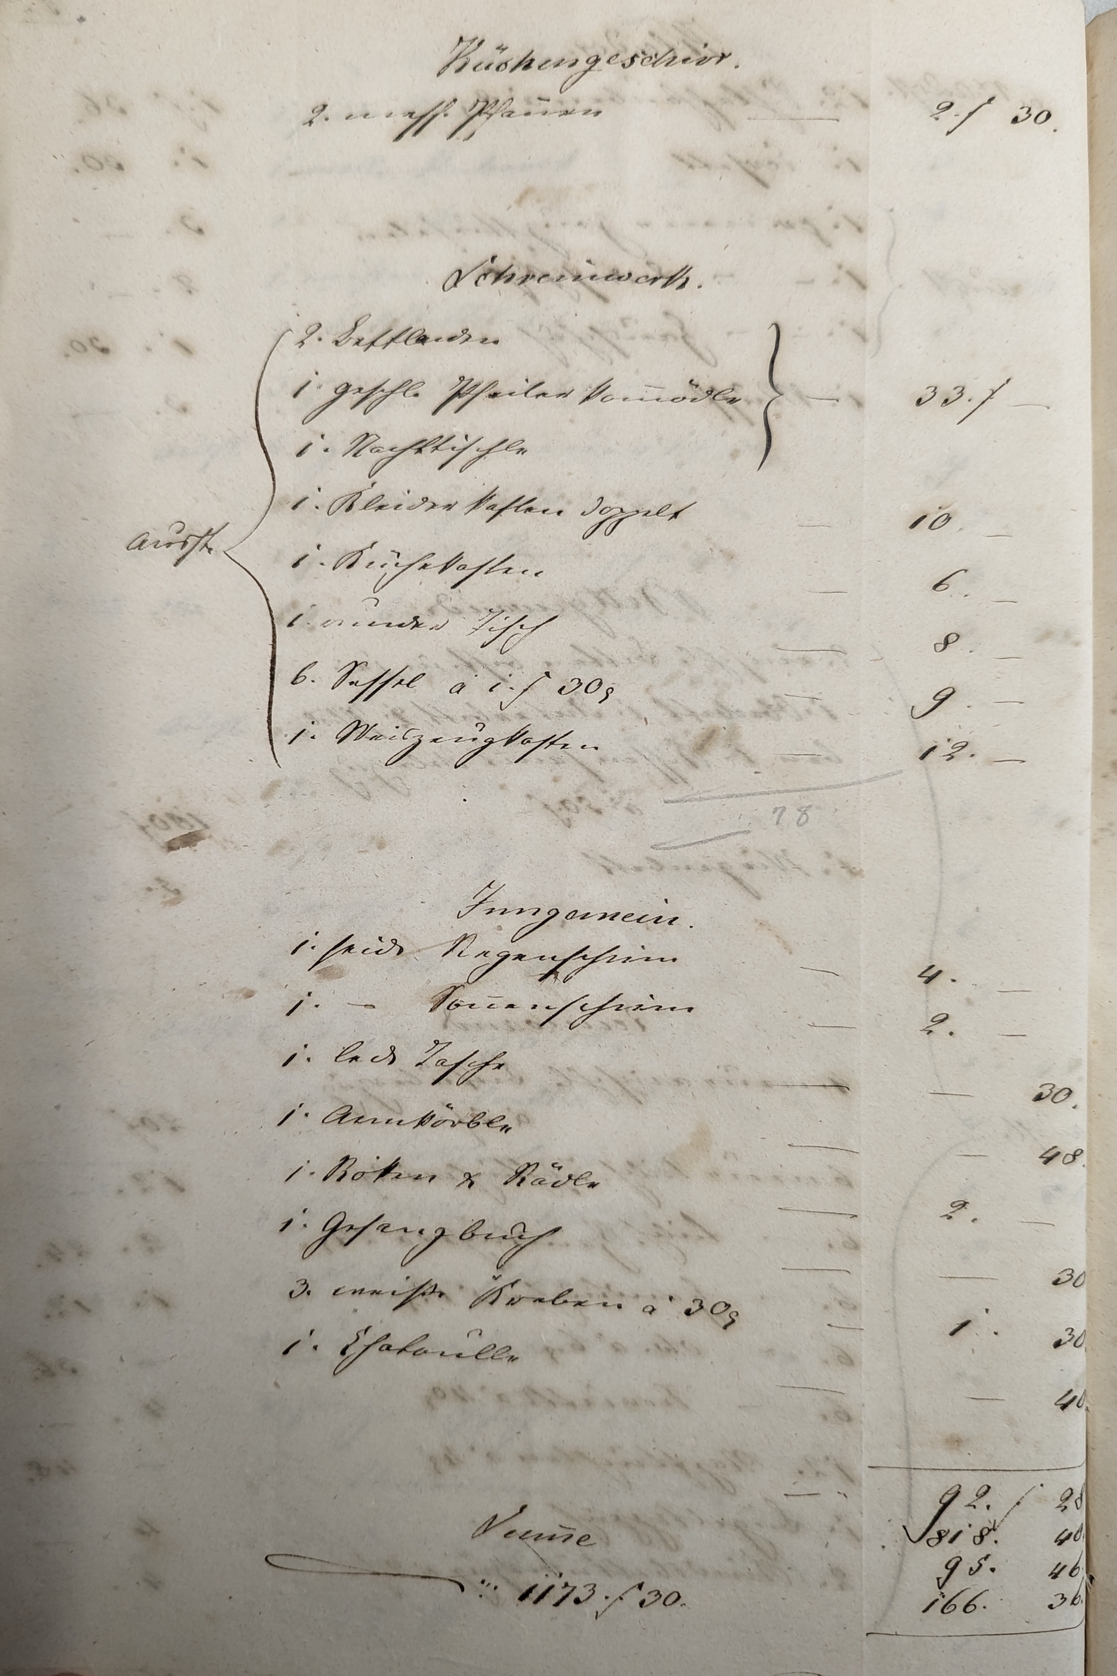 Küchengeschirr.
2. mess. Pfannen 2 f 30.
Schreinwerk.
2. Bettladen
1. geschl. Pfeiler Kom̄ödle — 33. f —
1. Nachttischle
1. Kleiderkasten doppelt — 10. —
Ausst.
1. Küchekasten — 6. —
1. runder Tisch — 8. —
6. Sessel à 1. f 30 — 9. —
1. Weiszeugkasten — 12. —
78
Inngemein.
1. seid. Regenschirm — 4. —
1. — Son̄enschirm — 2. —
1. led. Tasche — — 30.
1. Armkörble — — 48.
1. Roken & Rädle — 2. —
1. Gesangbuch — — 30
3. weiße Kreben à 30 — 1. 30
1. Chatoulle — — 40
92. f 28
818. 40.
Sum̄e
95. 46
1173. f 30. 166. 36